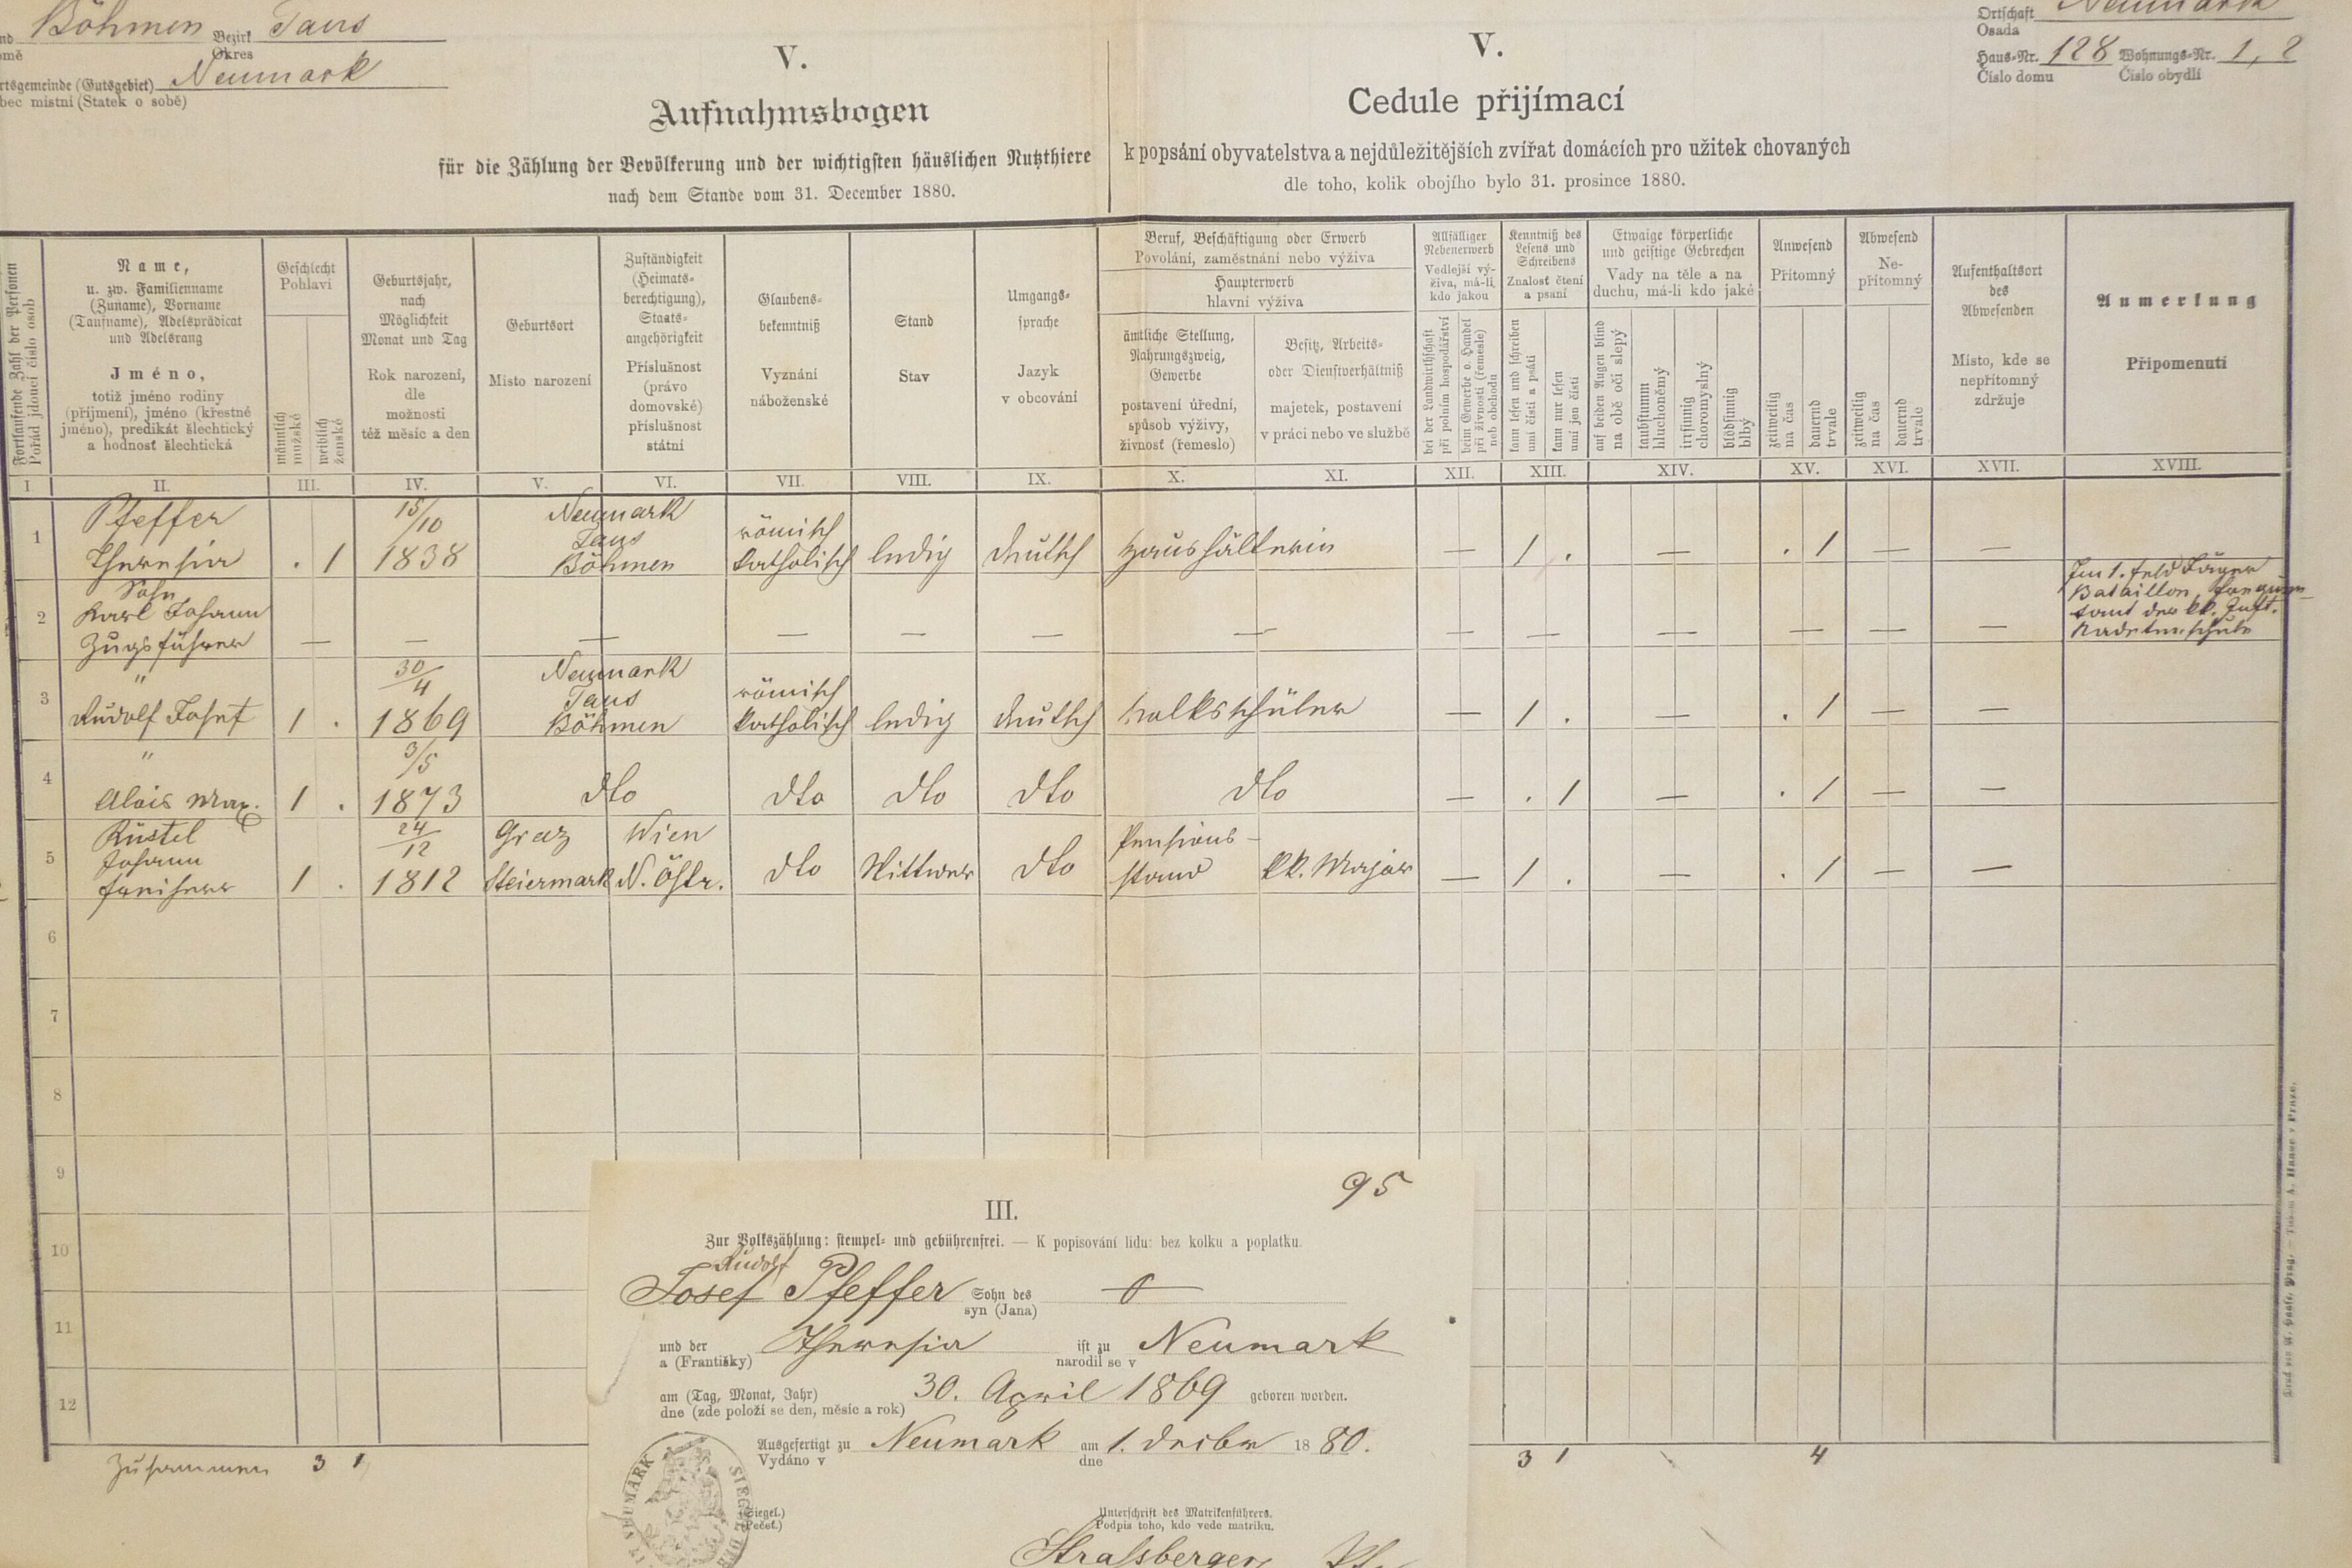 Böhmen Bezirk Taus
Okres
rtsgemeinde (Gutsgebiet) Neumark
bec místní (Statek o sobě)
V.
Aufnahmsbogen
für die Zählung der Bevölkerung und der wichtigsten häuslichen Nutzthiere
nach dem Stande vom 31. December 1880.
V.
Cedule přijímací
k popsání obyvatelstva a nejdůležitějších zvířat domácích pro užitek chovaných
dle toho, kolik obojího bylo 31. prosince 1880.
Ortschaft Neumark
Osada
Haus-Nr. 128 Wohnungs-Nr. 1, 2
Číslo domu Číslo obydlí
Fortlaufende Zahl der Personen
Pořád jdoucí číslo osob
Name,
u. zw. Familienname
(Zuname), Vorname
(Taufname), Adelsprädicat
und Adelsrang
Jméno,
totiž jméno rodiny
(příjmení), jméno (křestné
jméno), predikát šlechtický
a hodnosť šlechtická
Geschlecht
Pohlaví
männlich
mužské
weiblich
ženské
Geburtsjahr,
nach
Möglichkeit
Monat und Tag
Rok narození,
dle
možnosti
též měsíc a den
Geburtsort
Místo narození
Zuständigkeit
(Heimats-
berechtigung),
Staats-
angehörigkeit
Příslušnost
(právo
domovské)
příslušnost
státní
Glaubens-
bekenntniß
Vyznání
náboženské
Stand
Stav
Umgangs-
sprache
Jazyk
v obcování
Beruf, Beschäftigung oder Erwerb
Povolání, zaměstnání nebo výživa
Haupterwerb
hlavní výživa
ämtliche Stellung,
Nahrungszweig,
Gewerbe
postavení úřední,
spůsob výživy,
živnosť (řemeslo)
Besitz, Arbeits-
oder Dienstverhältniß
majetek, postavení
v práci nebo ve službě
Allfälliger
Nebenerwerb
Vedlejší vý-
živa, má-li
kdo jakou
bei der Landwirthschaft
při polním hospodářství
beim Gewerbe o. Handel
při živnosti (řemesle)
neb obchodu
Kenntniß des
Lesens und
Schreibens
Znalosť čtení
a psaní
kann lesen und schreiben
umí čísti a psáti
kann nur lesen
umí jen čísti
Etwaige körperliche
und geistige Gebrechen
Vady na těle a na
duchu, má-li kdo jaké
auf beiden Augen blind
na obě oči slepý
taubstumm
hluchoněmý
irrsinnig
choromyslný
blödsinnig
blbý
Anwesend
Přítomný
zeitweilig
na čas
dauernd
trvale
Abwesend
Ne-
přítomný
zeitweilig
na čas
dauernd
trvale
Aufenthaltsort
des
Abwesenden
Místo, kde se
nepřítomný
zdržuje
Anmerkung
Připomenutí
I II. III. IV. V. VI. VII. VIII. IX. X. XI. XII. XIII. XIV. XV. XVI. XVII. XVIII.
Pfeffer 15/10 Neumark
1 Theresia . 1 1838 Taus Böhmen römisch katholisch ledig deutsch Haushälterin — 1 . — . 1 — —
Sohn
2 Karl Johann
Zugsführer — — — — — — — — — — — — —
Im 1. Feld Jäger
Bataillon
der kk. Inft.
Kadetenschule
" 30/4 Neumark
3 Rudolf Josef 1 . 1869 Taus Böhmen römisch katholisch ledig deutsch Volksschüler — 1 . — . 1 — —
" 3/5
4 Alois Max. 1 . 1873 dto dto dto dto dto — . 1 — . 1 — —
Küstel 24/12 Graz Wien Pensions-
5 Johann
1 . 1812 Steiermark N. Östr. dto Wittwer dto stand kk. Major — 1 . — . 1 — —
6
7
8
9
10
11
12
Zusammen 3 1 3 1 4
95
III.
Zur Volkszählung: stempel- und gebührenfrei. — K popisování lidu: bez kolku a poplatku.
Rudolf
Josef Pfeffer Sohn des
syn (Jana)
und der Theresia ist zu Neumark
a (Františky) narodil se v
am (Tag, Monat, Jahr) 30. April 1869 geboren worden.
dne (zde položí se den, měsíc a rok)
Ausgefertigt zu Neumark am 1. Dezber 1880.
Vydáno v dne
(Siegel.)
(Pečeť.)
NEUMARK SIEGEL DER
Unterschrift des Matrikenführers.
Podpis toho, kdo vede matriku.
Strassberger